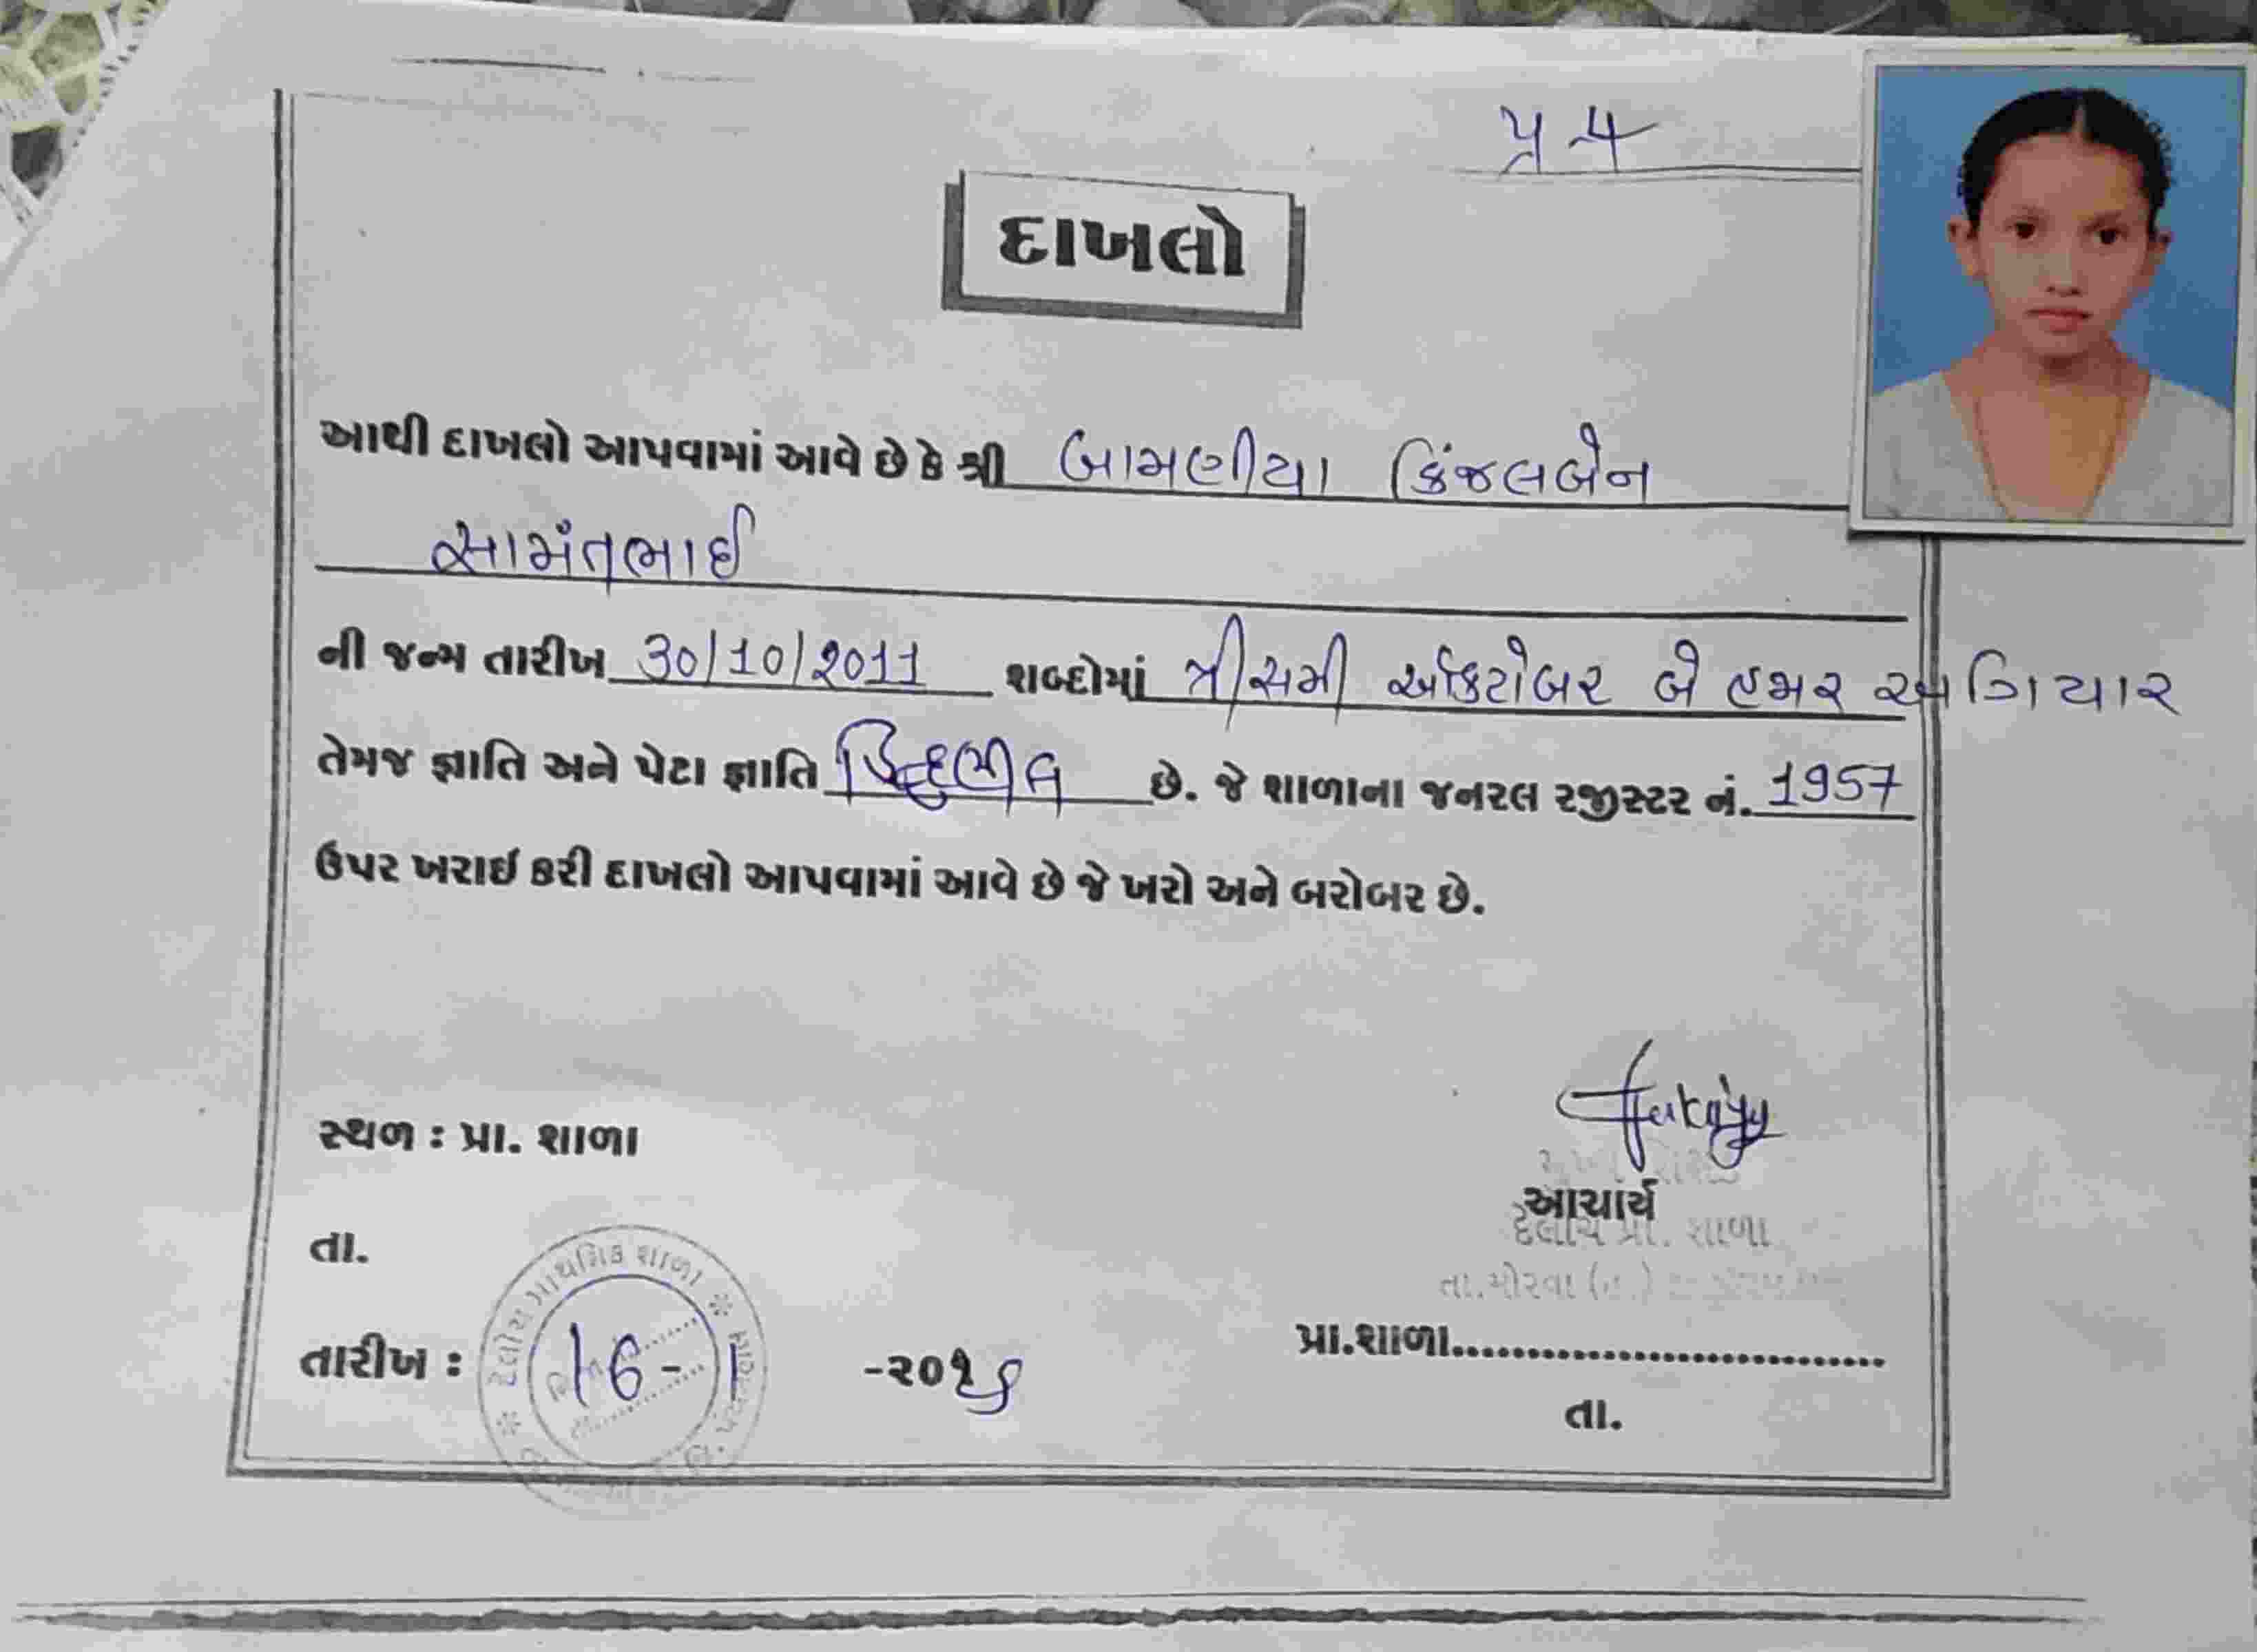 પ્ર ૫
દાખલો
આથી દાખલો આપવામાં આવે છે કે શ્રી બામણીયા કિંજલબેન
સામંતભાઈ
ની જન્મ તારીખ 30/10/2011 શબ્દોમાં ત્રીસમી ઓકટોબર બે હજાર અગિયાર
તેમજ જ્ઞાતિ અને પેટા જ્ઞાતિ હિન્દુભીલ છે. જે શાળાના જનરલ રજીસ્ટર નં. 1957
ઉપર ખરાઈ કરી દાખલો આપવામાં આવે છે જે ખરો અને બરોબર છે.
સ્થળ : પ્રા. શાળા
આચાર્ય
દેલોચ પ્રા. શાળા
તા.
તા.મોરવા
દેલોચ પ્રાથમિક શાળા
તારીખ : 16-1 -૨૦૧
પ્રા.શાળા..............................
તા.